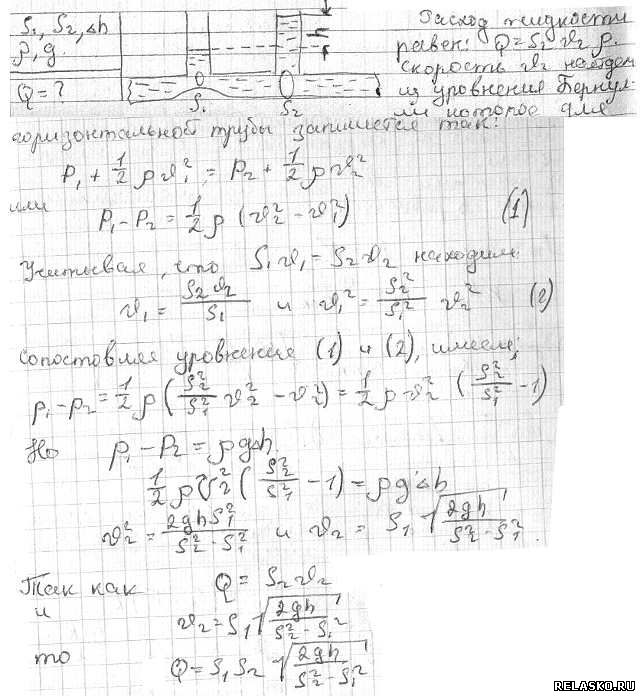 S₁, S₂, Δh
ρ, g.
Q = ?
h
S₁
S₂
Расход жидкости
равен: Q = S₂ v₂ ρ.
скорость v₂ найдем
из уровнения Бернул-
ли которое для
горизонтальной трубы запишется так:
P₁ + 1/2 ρ v₁² = P₂ + 1/2 ρ v₂²
или
P₁ - P₂ = 1/2 ρ (v₂² - v₁²) (1)
Учитывая, что S₁ v₁ = S₂ v₂ находим:
v₁ = S₂ v₂ / S₁ и v₁² = S₂² / S₁² v₂² (2)
Сопоставляя уровнения (1) и (2), имеем;
p₁ - p₂ = 1/2 ρ (S₂² / S₁² v₂² - v₂²) = 1/2 ρ v₂² (S₂² / S₁² - 1)
Но p₁ - p₂ = ρ g Δh.
1/2 ρ v₂² (S₂² / S₁² - 1) = ρ g Δh
v₂² = 2gh S₁² / (S₂² - S₁²) и v₂ = S₁ √(2gh / (S₂² - S₁²))
Так как Q = S₂ v₂
и v₂ = S₁ √(2gh / (S₂² - S₁²))
то Q = S₁ S₂ √(2gh / (S₂² - S₁²))
RELASKO.RU